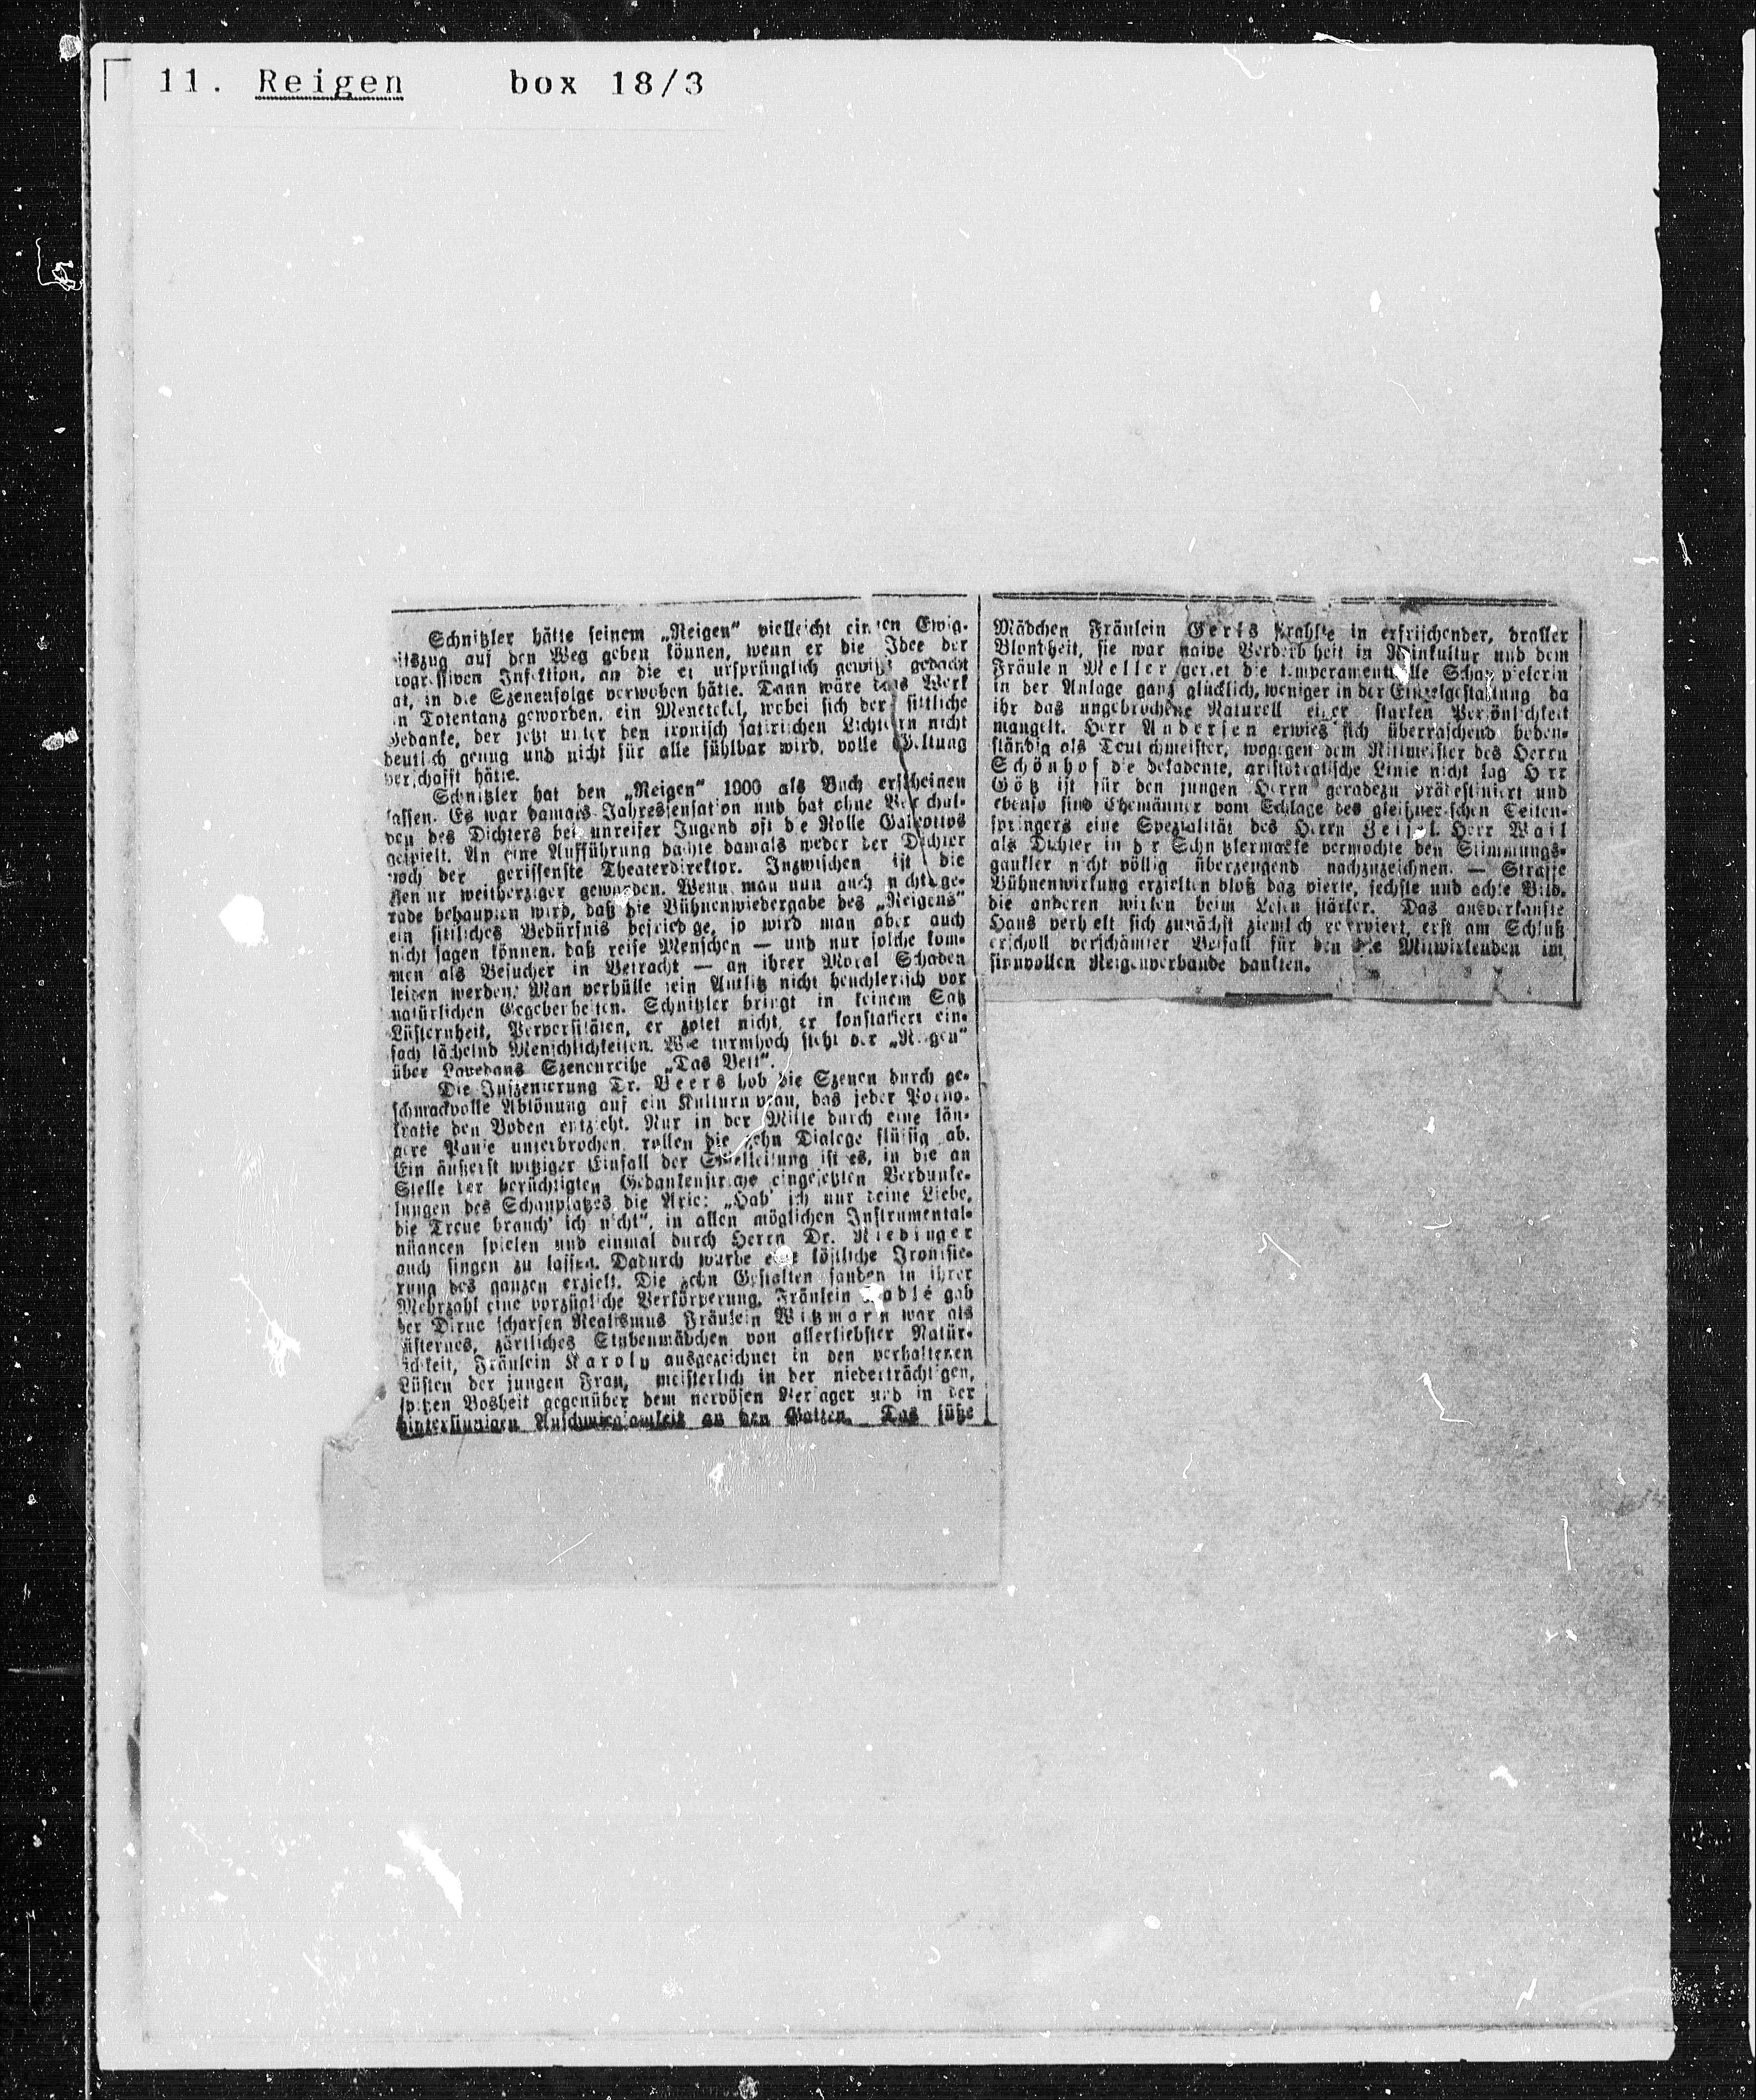 11. Reigen box 18/3
Schnitzler hätte seinem „Reigen" vielleicht einen Ewig-
itszug auf den Weg geben können, wenn er die Idee der
rogressiven Infektion, an die er ursprünglich gewiß gedacht
at, in die Szenenfolge verwoben hätte. Dann wäre das Werk
in Totentanz geworden, ein Menetekel, wobei sich der sittliche
Gedanke, der jetzt unter den ironisch satirischen Lichtern nicht
deutlich genug und nicht für alle fühlbar wird, volle Geltung
verschafft hätte.
Schnitzler hat den „Reigen" 1900 als Buch erscheinen
lassen. Es war damals Jahressensation und hat ohne Verschul-
den des Dichters bei unreifer Jugend oft die Rolle Galeottos
gespielt. An eine Aufführung dachte damals weder der Dichter
noch der gerissenste Theaterdirektor. Inzwischen ist die
Zensur weitherziger geworden. Wenn man nun auch nicht ge-
rade behaupten wird, daß die Bühnenwiedergabe des „Reigens"
ein sittliches Bedürfnis befriedige, so wird man aber auch
nicht sagen können, daß reife Menschen — und nur solche kom-
men als Besucher in Betracht — an ihrer Moral Schaden
leiden werden. Man verhülle sein Antlitz nicht heuchlerisch vor
natürlichen Gegebenheiten. Schnitzler bringt in keinem Satz
Lüsternheit, Perversitäten, er zotet nicht, er konstatiert ein-
fach lächelnd Menschlichkeiten. Wie turmhoch steht der „Reigen"
über Lavedans Szenenreihe „Das Bett".
Die Inszenierung Dr. Beers hob die Szenen durch ge-
schmackvolle Abtönung auf ein Kulturniveau, das jeder Porno-
kratie den Boden entzieht. Nur in der Mitte durch eine län-
gere Pause unterbrochen, rollen die zehn Dialoge flüssig ab.
Ein äußerst witziger Einfall der Spielleitung ist es, in die an
Stelle der berüchtigten Gedankenstriche eingesetzten Verdunke-
lungen des Schauplatzes die Arie: „Hab' ich nur deine Liebe,
die Treue brauch' ich nicht", in allen möglichen Instrumental-
nüancen spielen und einmal durch Herrn Dr. Riedinger
auch singen zu lassen. Dadurch wurde eine köstliche Ironisie-
rung des ganzen erzielt. Die zehn Gestalten fanden in ihrer
Mehrzahl eine vorzügliche Verkörperung. Fräulein gab
der Dirne scharfen Realismus Fräulein Witzmann war als
lüsternes, zärtliches Stubenmädchen von allerliebster Natür-
lichkeit, Fräulein Karoly ausgezeichnet in den verhaltenen
Lüsten der jungen Frau, meisterlich in der niederträchtigen,
spitzen Bosheit gegenüber dem nervösen Versager und in der
hintersinnigen Anschmiegsamkeit an den Gatten. Das süße
Mädchen Fräulein Gerls strahlte in erfrischender, draller
Blondheit, sie war naive Verderbheit in Reinkultur und dem
Fräulein Meller geriet die temperamentvolle Schauspielerin
in der Anlage ganz glücklich, weniger in der Einzelgestaltung da
ihr das ungebrochene Naturell einer starken Persönlichkeit
mangelt. Herr Andersen erwies sich überraschend boden-
ständig als Deutschmeister, wogegen dem Rittmeister des Herrn
Schönhof die dekadente, aristokratische Linie nicht lag Herr
Götz ist für den jungen Herrn geradezu prädestiniert und
ebenso sind Ehemänner vom Schlage des gleißnerischen Seiten-
springers eine Spezialität des Herrn Zeisel. Herr Wail
als Dichter in der Schnitzlermaske vermochte den Stimmungs-
gaukler nicht völlig überzeugend nachzuzeichnen. — Straffe
Bühnenwirkung erzielten bloß das vierte, sechste und achte Bild.
die anderen wirken beim Lesen stärker. Das ausverkaufte
Haus verhielt sich zunächst ziemlich reserviert, erst am Schluß
erscholl verschämter Beifall für den die Mitwirkenden im
sinnvollen Reigenverbande dankten.